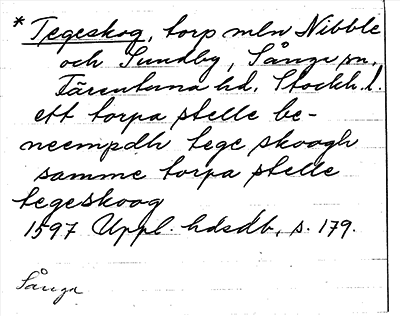 * Tegeskog, torp mln Nibble
och Sundby, Sånga sn,
Färentuna hd, Stockh. l.
ett torpa stelle be-
neempdh tege skoogh
samme torpa stelle
tegeskoog
1597 Uppl. hdsdb, s. 179.
Sånga